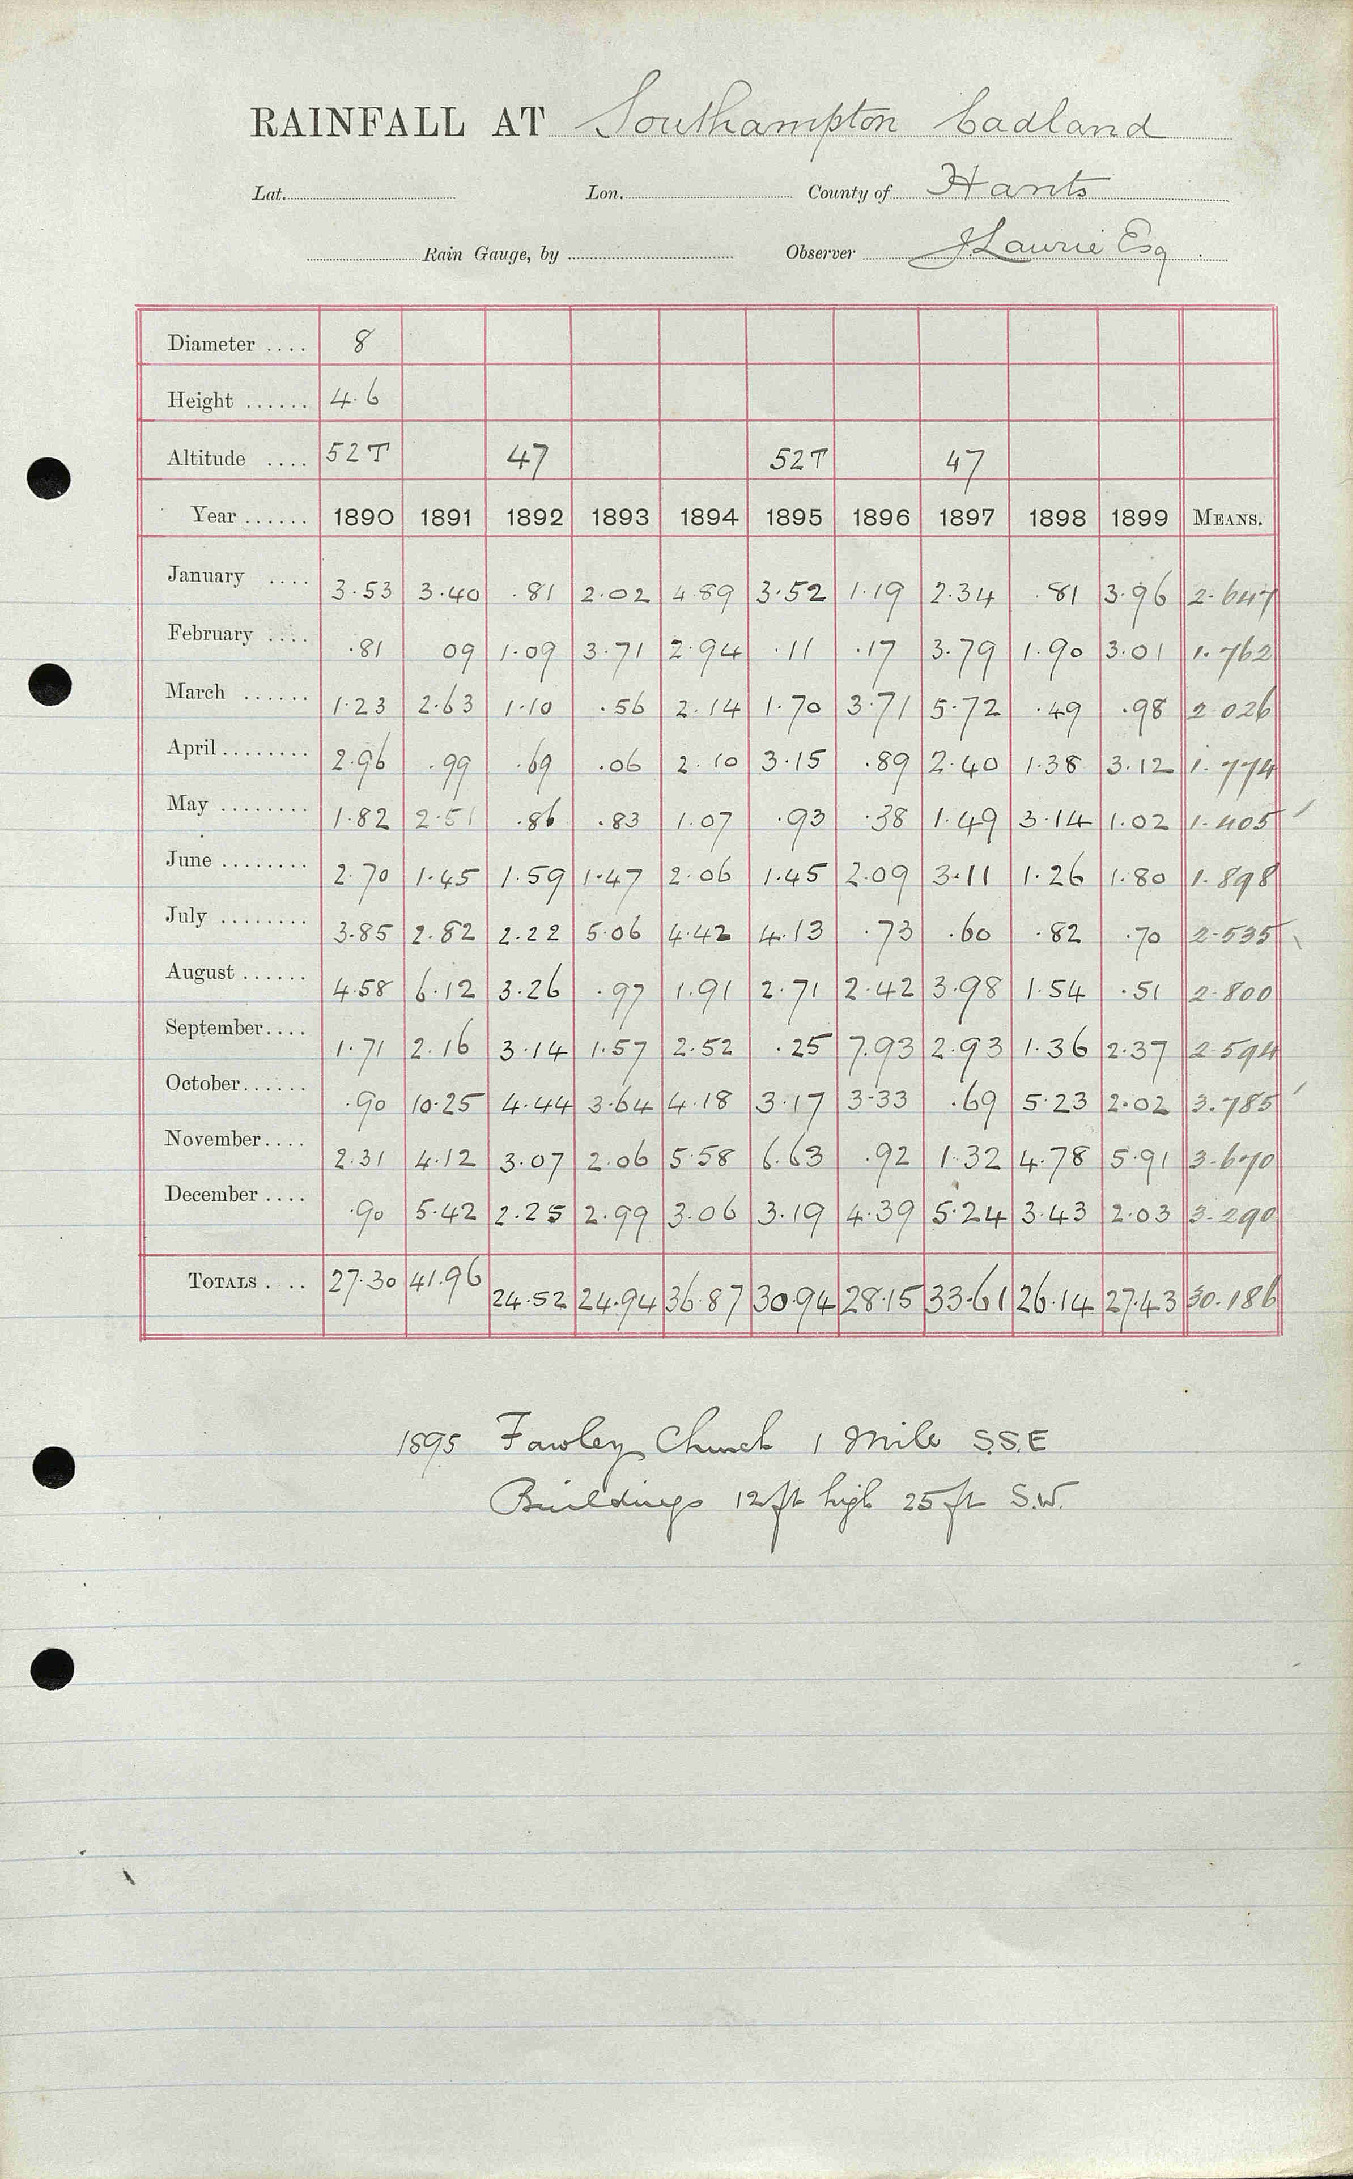 RAINFALL AT Southampton Cadland
Lat. Lon. County of Hants
Rain Gauge, by Observer J Laurie Esq
Diameter .... 8
Height ...... 4.6
Altitude .... 52T 47 52T 47
Year ...... 1890 1891 1892 1893 1894 1895 1896 1897 1898 1899 MEANS.
January .... 3.53 3.40 .81 2.02 4.89 3.52 1.19 2.34 .81 3.96 2.647
February .... .81 09 1.09 3.71 2.94 .11 .17 3.79 1.90 3.01 1.762
March ...... 1.23 2.63 1.10 .56 2.14 1.70 3.71 5.72 .49 .98 2.026
April ........ 2.96 .99 .69 .06 2.10 3.15 .89 2.40 1.38 3.12 1.774
May ........ 1.82 2.51 .86 .83 1.07 .93 .38 1.49 3.14 1.02 1.405
June ........ 2.70 1.45 1.59 1.47 2.06 1.45 2.09 3.11 1.26 1.80 1.898
July ........ 3.85 2.82 2.22 5.06 4.42 4.13 .73 .60 .82 .70 2.535
August ...... 4.58 6.12 3.26 .97 1.91 2.71 2.42 3.98 1.54 .51 2.800
September.... 1.71 2.16 3.14 1.57 2.52 .25 7.93 2.93 1.36 2.37 2.594
October...... .90 10.25 4.44 3.64 4.18 3.17 3.33 .69 5.23 2.02 3.785
November.... 2.31 4.12 3.07 2.06 5.58 6.63 .92 1.32 4.78 5.91 3.670
December .... .90 5.42 2.25 2.99 3.06 3.19 4.39 5.24 3.43 2.03 3.290
TOTALS .... 27.30 41.96 24.52 24.94 36.87 30.94 28.15 33.61 26.14 27.43 30.186
1895 Fawley Church 1 Mile S.S.E
Buildings 12 ft high 25 ft S.W.